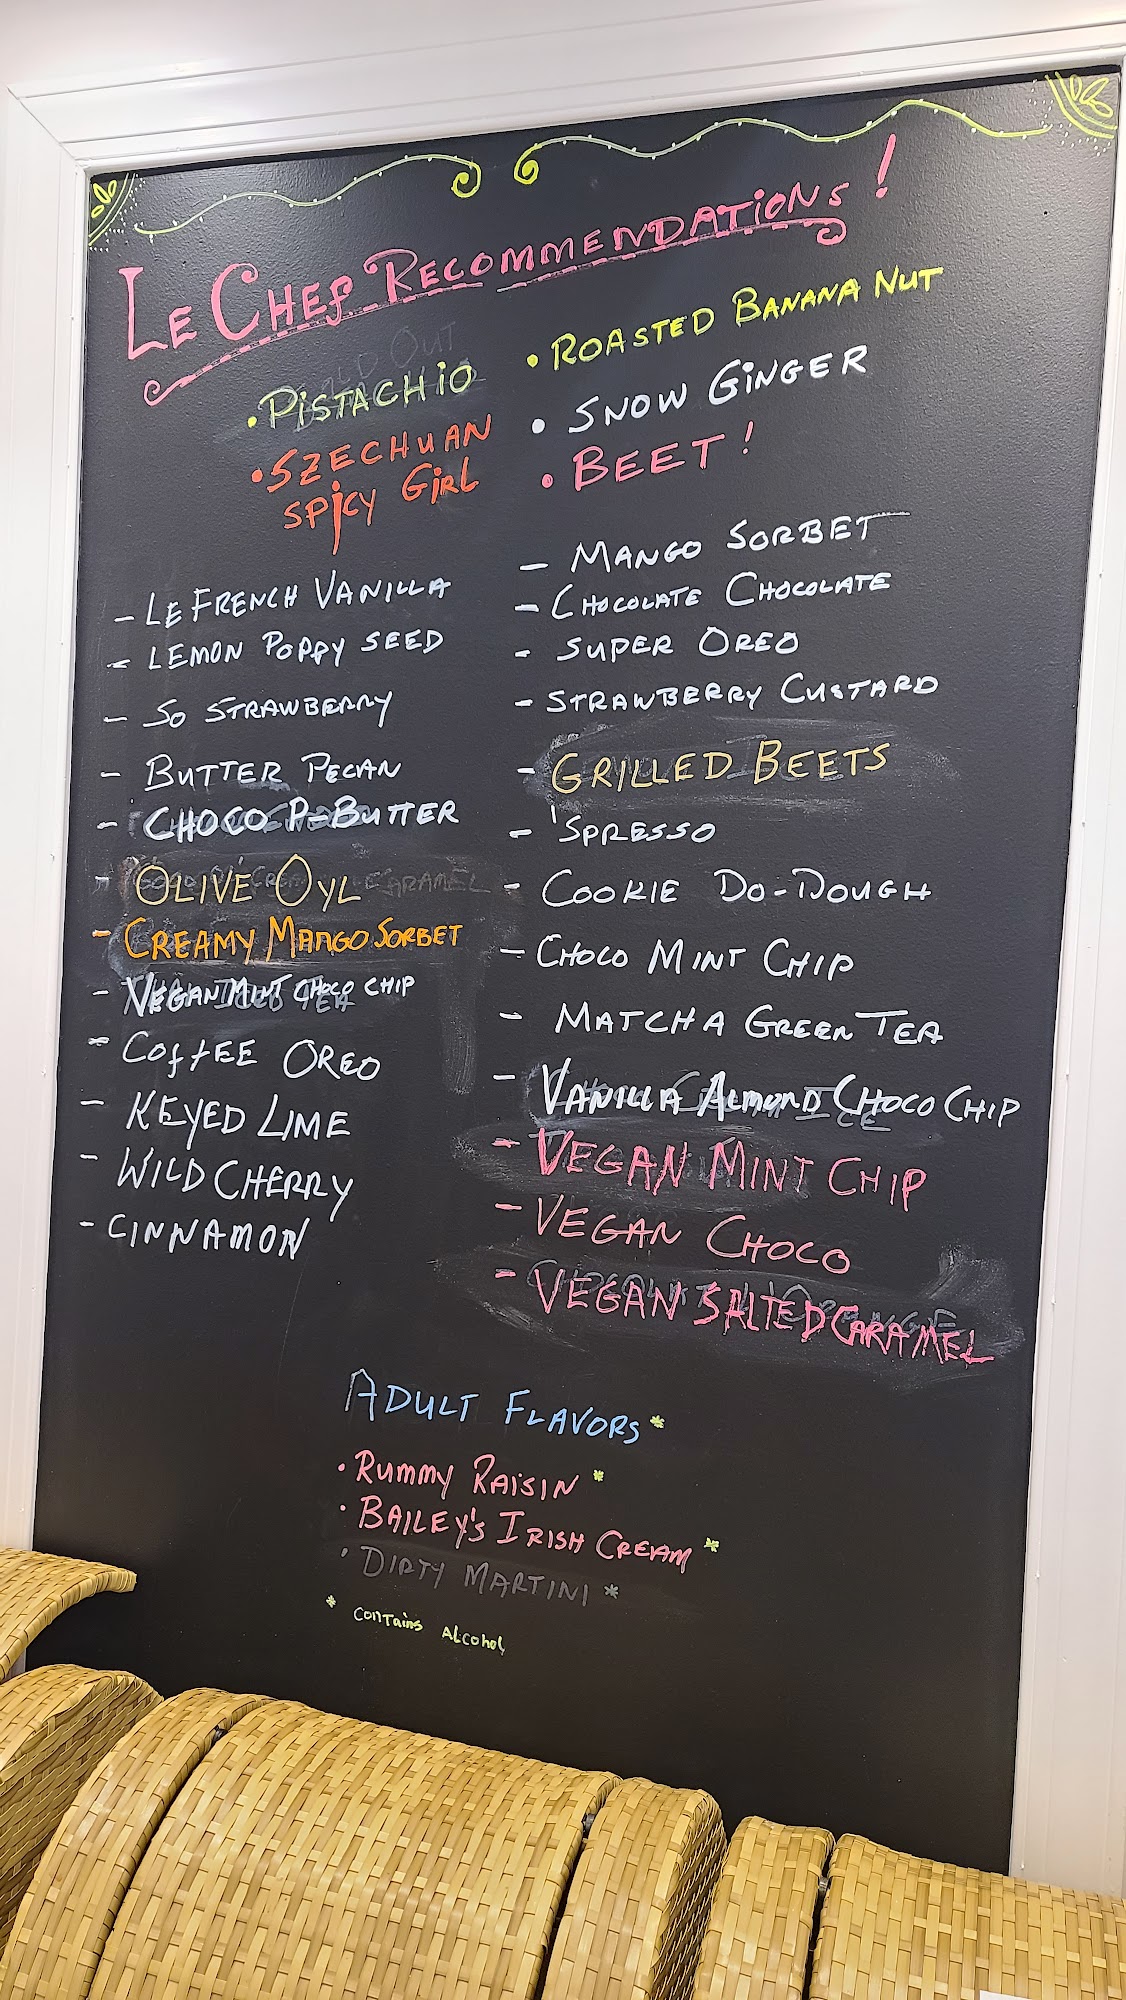 Le Chef Recommendations!
• Pistachio
• Szechuan
Spicy Girl
• Roasted Banana Nut
• Snow Ginger
• Beet!
- Le French Vanilla
- Lemon Poppy Seed
- So Strawberry
- Butter Pecan
- Choco P-Butter
- Olive Oyl
- Creamy Mango Sorbet
- Vegan Mint Choco Chip
- Coffee Oreo
- Keyed Lime
- Wild Cherry
- Cinnamon
- Mango Sorbet
- Chocolate Chocolate
- Super Oreo
- Strawberry Custard
- Grilled Beets
- 'Spresso
- Cookie Do-Dough
- Choco Mint Chip
- Matcha Green Tea
- Vanilla Almond Choco Chip
- Vegan Mint Chip
- Vegan Choco
- Vegan Salted Caramel
Adult Flavors*
• Rummy Raisin *
• Bailey's Irish Cream *
• Dirty Martini *
* Contains Alcohol